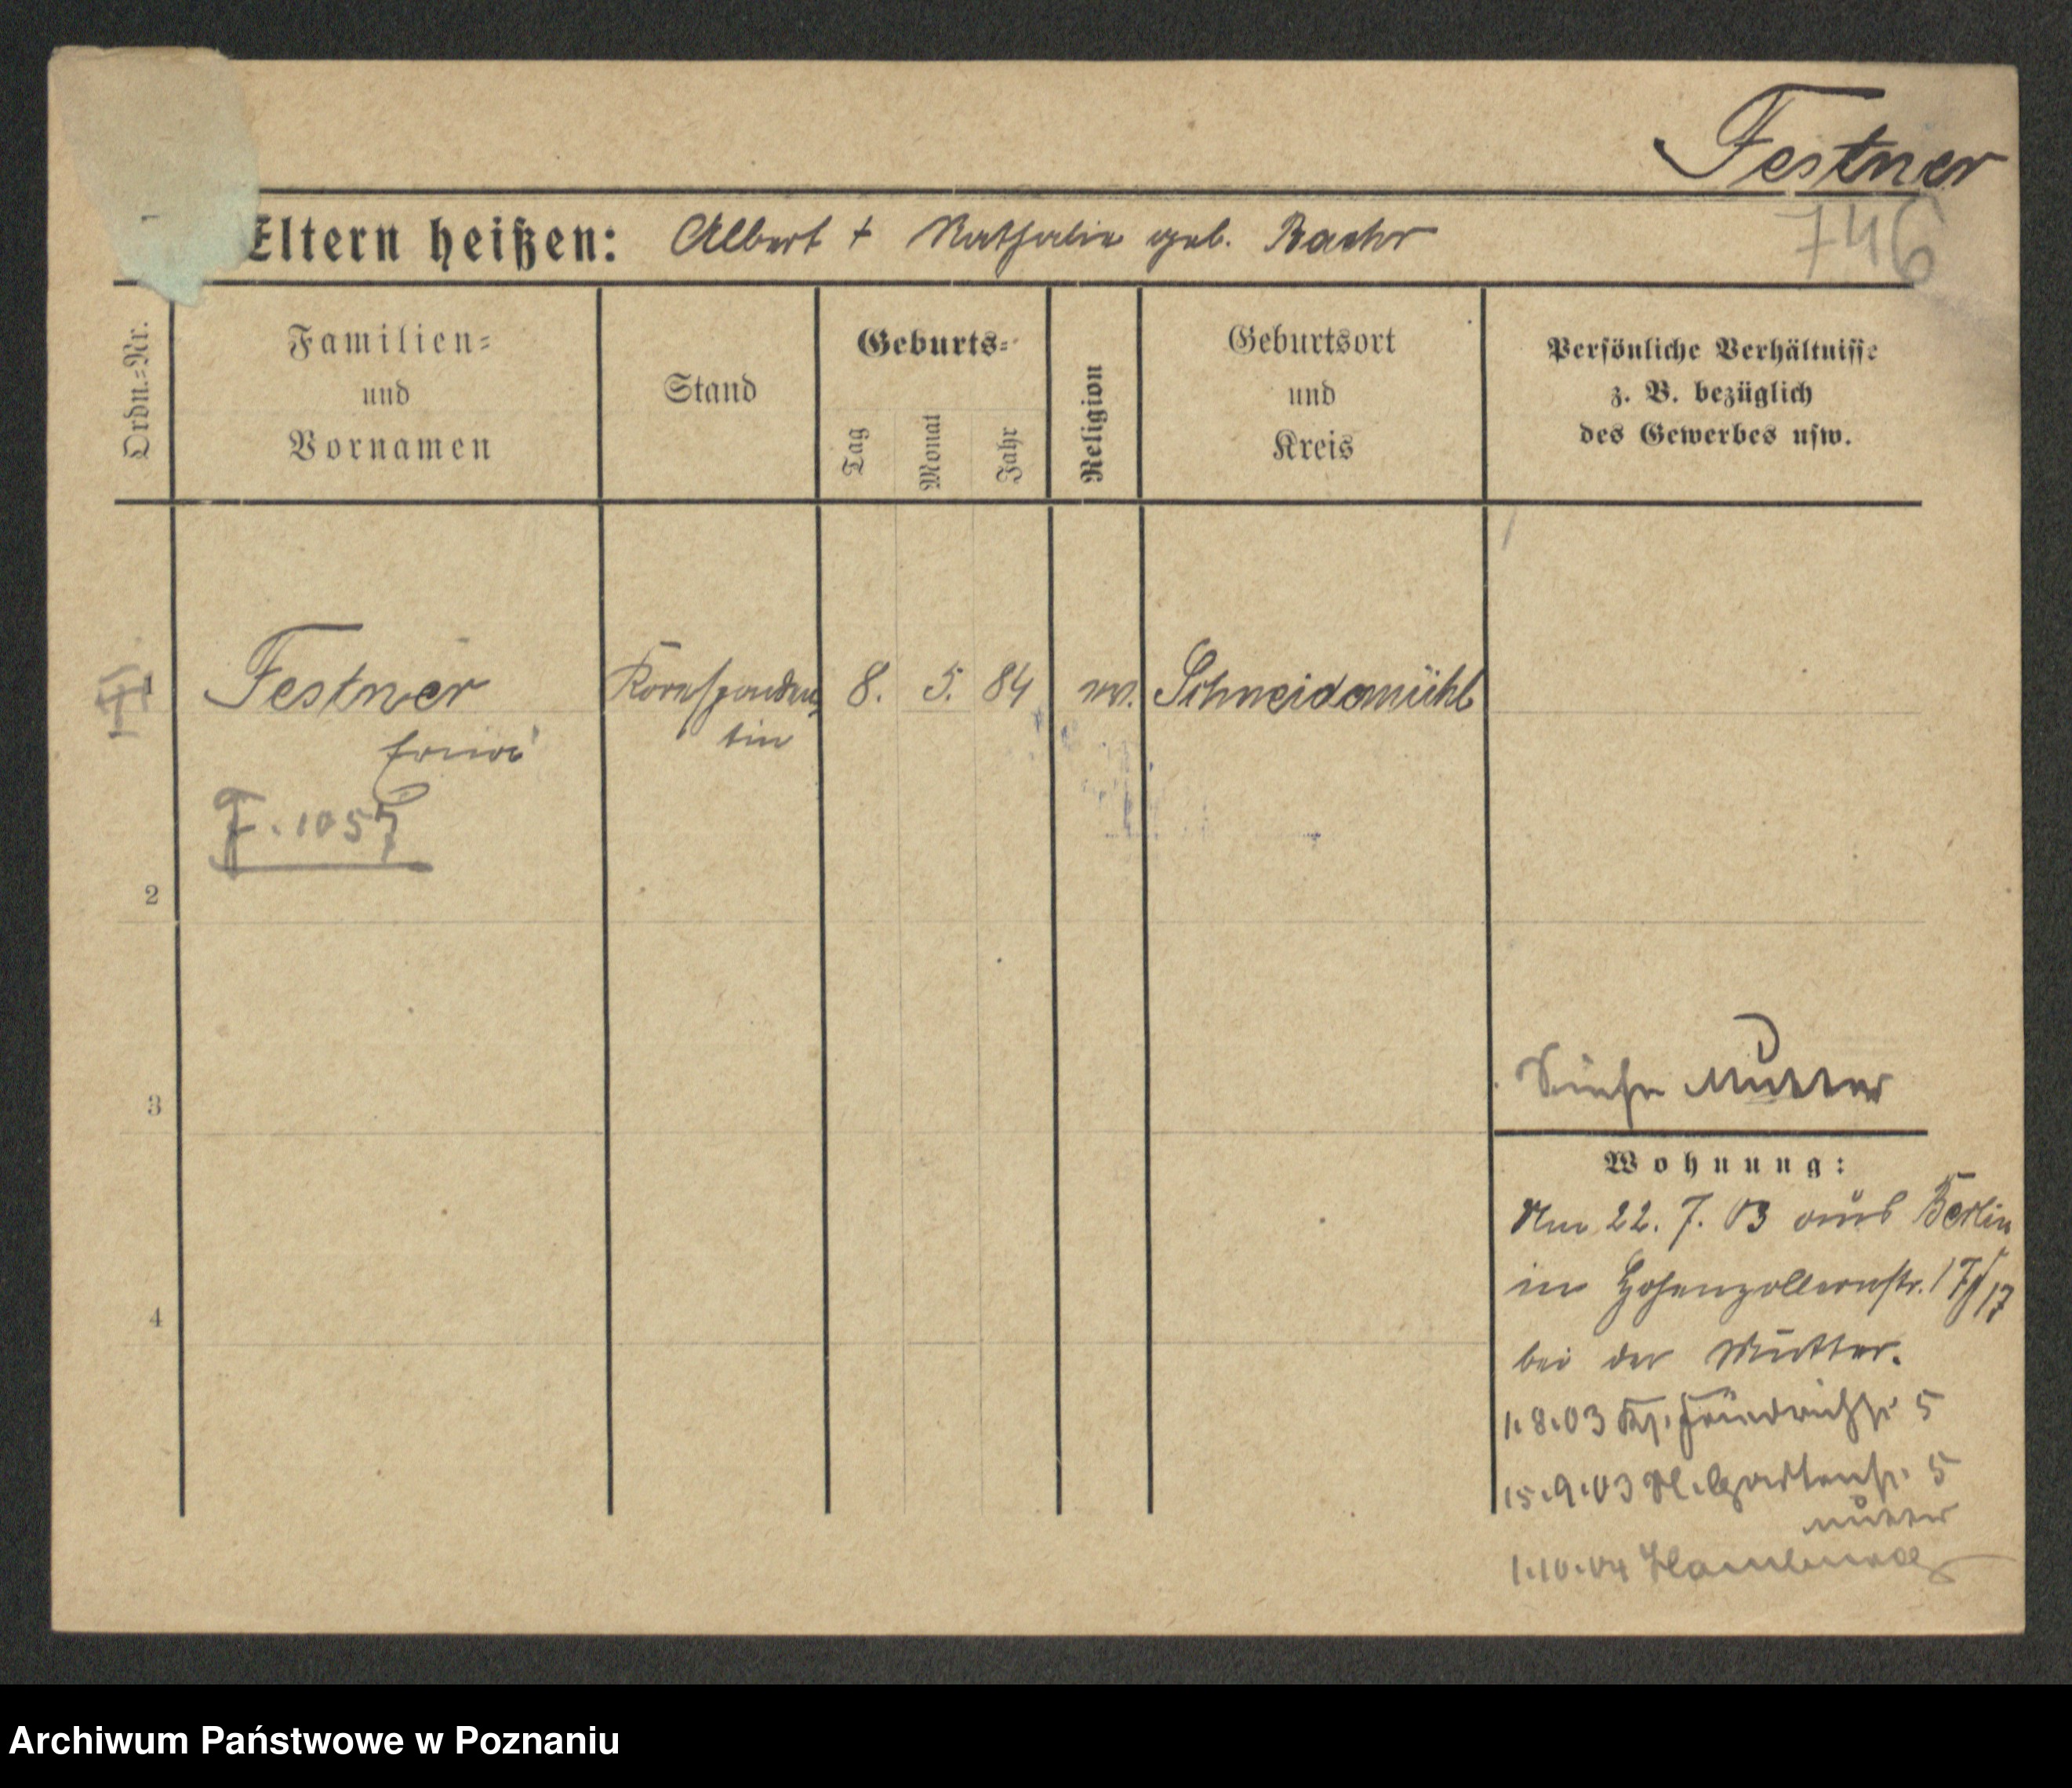 Festner
746
Eltern heißen: Albert + Nathalie geb. Baehr
Ordn.=Nr.
Familien=
und
Vornamen
Stand
Geburts=
Tag
Monat
Jahr
Religion
Geburtsort
und
Kreis
Persönliche Verhältnisse
z. B. bezüglich
des Gewerbes usw.
1 Festner Korresponden 8. 5. 84 Schneidemühl
tin
F. 1057
2
3
Siehe Mutter
4
Wohnung:
Am 22. 7. 03 aus Berlin
in Hohenzollernstr. 17
bei der Mutter.
1.8.03 5
15.9.03 Gartenstr. 5
Mutter
1.10.04 Hamburg
Archiwum Państwowe w Poznaniu